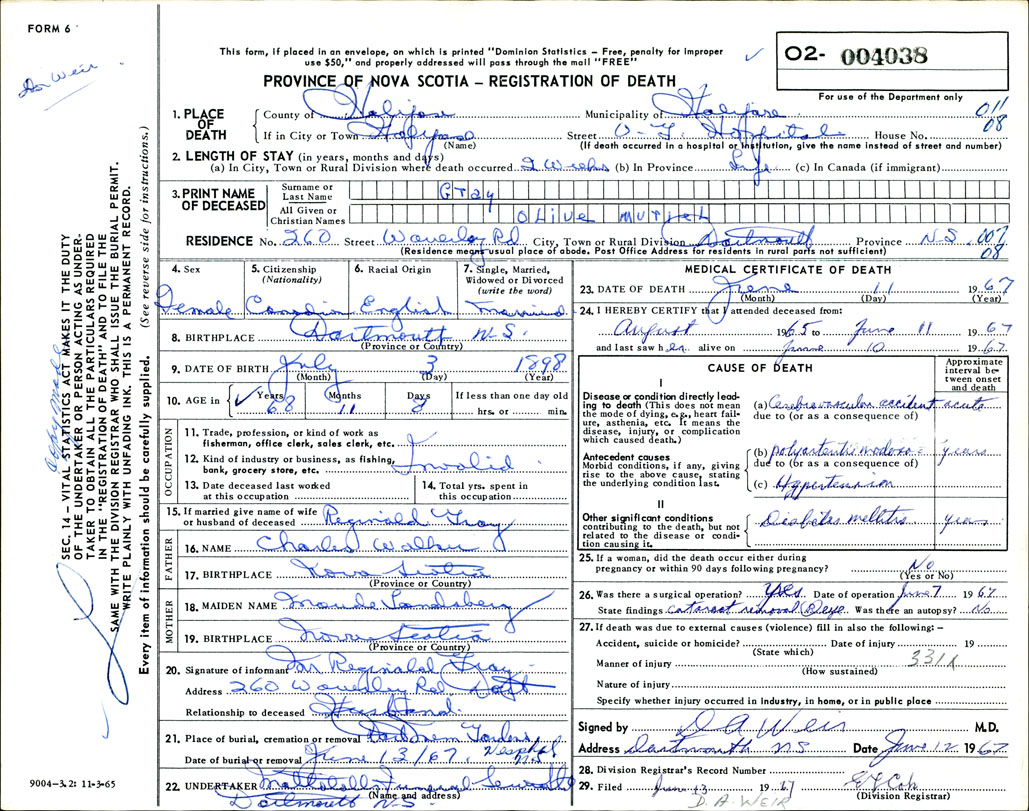 FORM 6
Dr Weir
This form, if placed in an envelope, on which is printed "Dominion Statistics – Free, penalty for improper
use $50," and properly addressed will pass through the mail "FREE"
O2- 004038
PROVINCE OF NOVA SCOTIA – REGISTRATION OF DEATH
For use of the Department only
1. PLACE OF DEATH
County of Halifax Municipality of Halifax 011
If in City or Town Halifax Street V.G. Hospital House No. 08
(Name) (If death occurred in a hospital or institution, give the name instead of street and number)
2. LENGTH OF STAY (in years, months and days)
(a) In City, Town or Rural Division where death occurred 2 Weeks (b) In Province Life (c) In Canada (if immigrant)
3. PRINT NAME OF DECEASED
Surname or Last Name Gray
All Given or Christian Names Olive Muriel
RESIDENCE No. 260 Street Waverley Rd City, Town or Rural Division Dartmouth Province N.S. 007
(Residence means usual place of abode. Post Office Address for residents in rural parts not sufficient) 08
4. Sex Female
5. Citizenship (Nationality) Canadian
6. Racial Origin English
7. Single, Married, Widowed or Divorced (write the word) Married
8. BIRTHPLACE Dartmouth N.S.
(Province or Country)
9. DATE OF BIRTH July 3 1898
(Month) (Day) (Year)
10. AGE in Years 68 Months 11 Days 8 If less than one day old
hrs. or min.
OCCUPATION
11. Trade, profession, or kind of work as
fisherman, office clerk, sales clerk, etc.
12. Kind of industry or business, as fishing,
bank, grocery store, etc. Invalid
13. Date deceased last worked
at this occupation
14. Total yrs. spent in
this occupation
15. If married give name of wife
or husband of deceased Reginald Gray
FATHER
16. NAME Charles Walker
17. BIRTHPLACE Nova Scotia
(Province or Country)
MOTHER
18. MAIDEN NAME Maude
19. BIRTHPLACE Nova Scotia
(Province or Country)
20. Signature of informant Reginald Gray
Address 260 Waverley Rd. Dart
Relationship to deceased Husband
21. Place of burial, cremation or removal Gardens
Date of burial or removal June 13/67 N.S.
22. UNDERTAKER Mattatalls Funeral
(Name and address)
Dartmouth N.S.
MEDICAL CERTIFICATE OF DEATH
23. DATE OF DEATH June 11 1967
(Month) (Day) (Year)
24. I HEREBY CERTIFY that I attended deceased from:
August 1965 to June 11 1967
and last saw her alive on June 10 1967
CAUSE OF DEATH
Approximate interval between onset and death
I
Disease or condition directly leading to death (This does not mean the mode of dying, e.g., heart failure, asthenia, etc. It means the disease, injury, or complication which caused death.)
(a) Cerebrovascular accident acute
due to (or as a consequence of)
Antecedent causes
Morbid conditions, if any, giving rise to the above cause, stating the underlying condition last.
(b) polyarteritis nodosa years
due to (or as a consequence of)
(c) Hypertension
II
Other significant conditions
contributing to the death, but not related to the disease or condition causing it.
Diabetes mellitis years
25. If a woman, did the death occur either during
pregnancy or within 90 days following pregnancy? No
(Yes or No)
26. Was there a surgical operation? Yes Date of operation June 7 1967
State findings cataract removal eye Was there an autopsy? No
27. If death was due to external causes (violence) fill in also the following: –
Accident, suicide or homicide? Date of injury 19
(State which)
Manner of injury 331X
(How sustained)
Nature of injury
Specify whether injury occurred in Industry, in home, or in public place
Signed by D A Weir M.D.
Address Dartmouth NS Date June 12 1967
28. Division Registrar's Record Number
29. Filed June 13 1967
D.A. WEIR (Division Registrar)
SEC. 14 – VITAL STATISTICS ACT MAKES IT THE DUTY
OF THE UNDERTAKER OR PERSON ACTING AS UNDER-
TAKER TO OBTAIN ALL THE PARTICULARS REQUIRED
IN THE "REGISTRATION OF DEATH" AND TO FILE THE
SAME WITH THE DIVISION REGISTRAR WHO SHALL ISSUE THE BURIAL PERMIT.
WRITE PLAINLY WITH UNFADING INK. THIS IS A PERMANENT RECORD.
Every item of information should be carefully supplied. (See reverse side for instructions.)
9004–3.2: 11-3-65